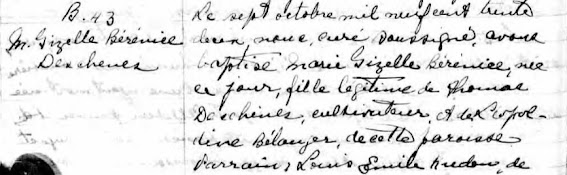 B. 43
M. Gizelle Bérénice
Deschenes
Le sept octobre mil neuf cent trente
deux, nous, curé soussigné, avons
baptisé Marie Gizelle Bérénice, née
ce jour, fille légitime de Thomas
Deschênes, cultivateur, et de Léopol-
dine Bélanger, de cette paroisse
Parrain, Louis Emile Hudon, de